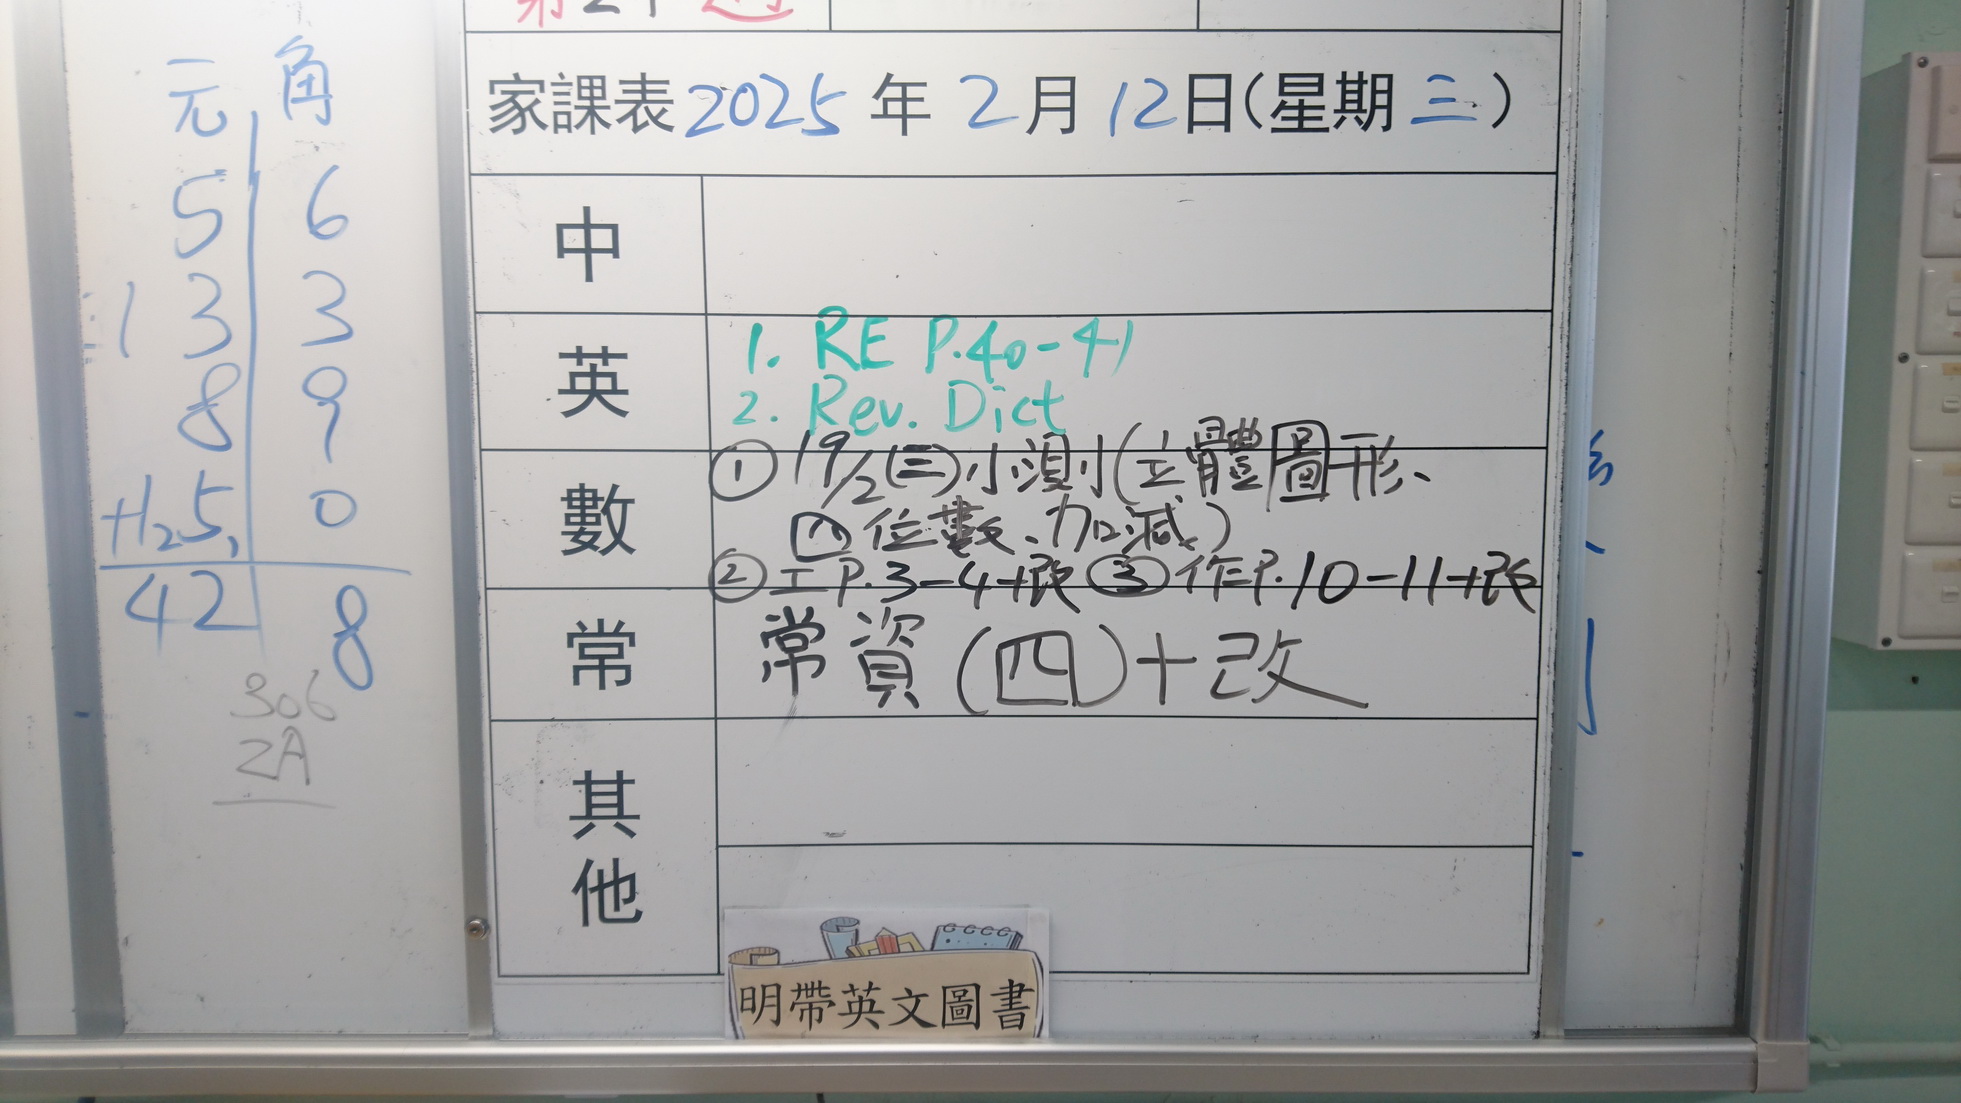 元 角
5 6
13 3
8 9
+125, 0
42 8
306
2A
家課表 2025 年 2 月 12 日(星期 三)
中
英
1. RE P.40-41
2. Rev. Dict
數
① 19/2(三)小測(立體圖形、
四位數、加減)
② 工P.3-4+改 ③ 作P.10-11+改
常
常資(四)+改
其他
明帶英文圖書